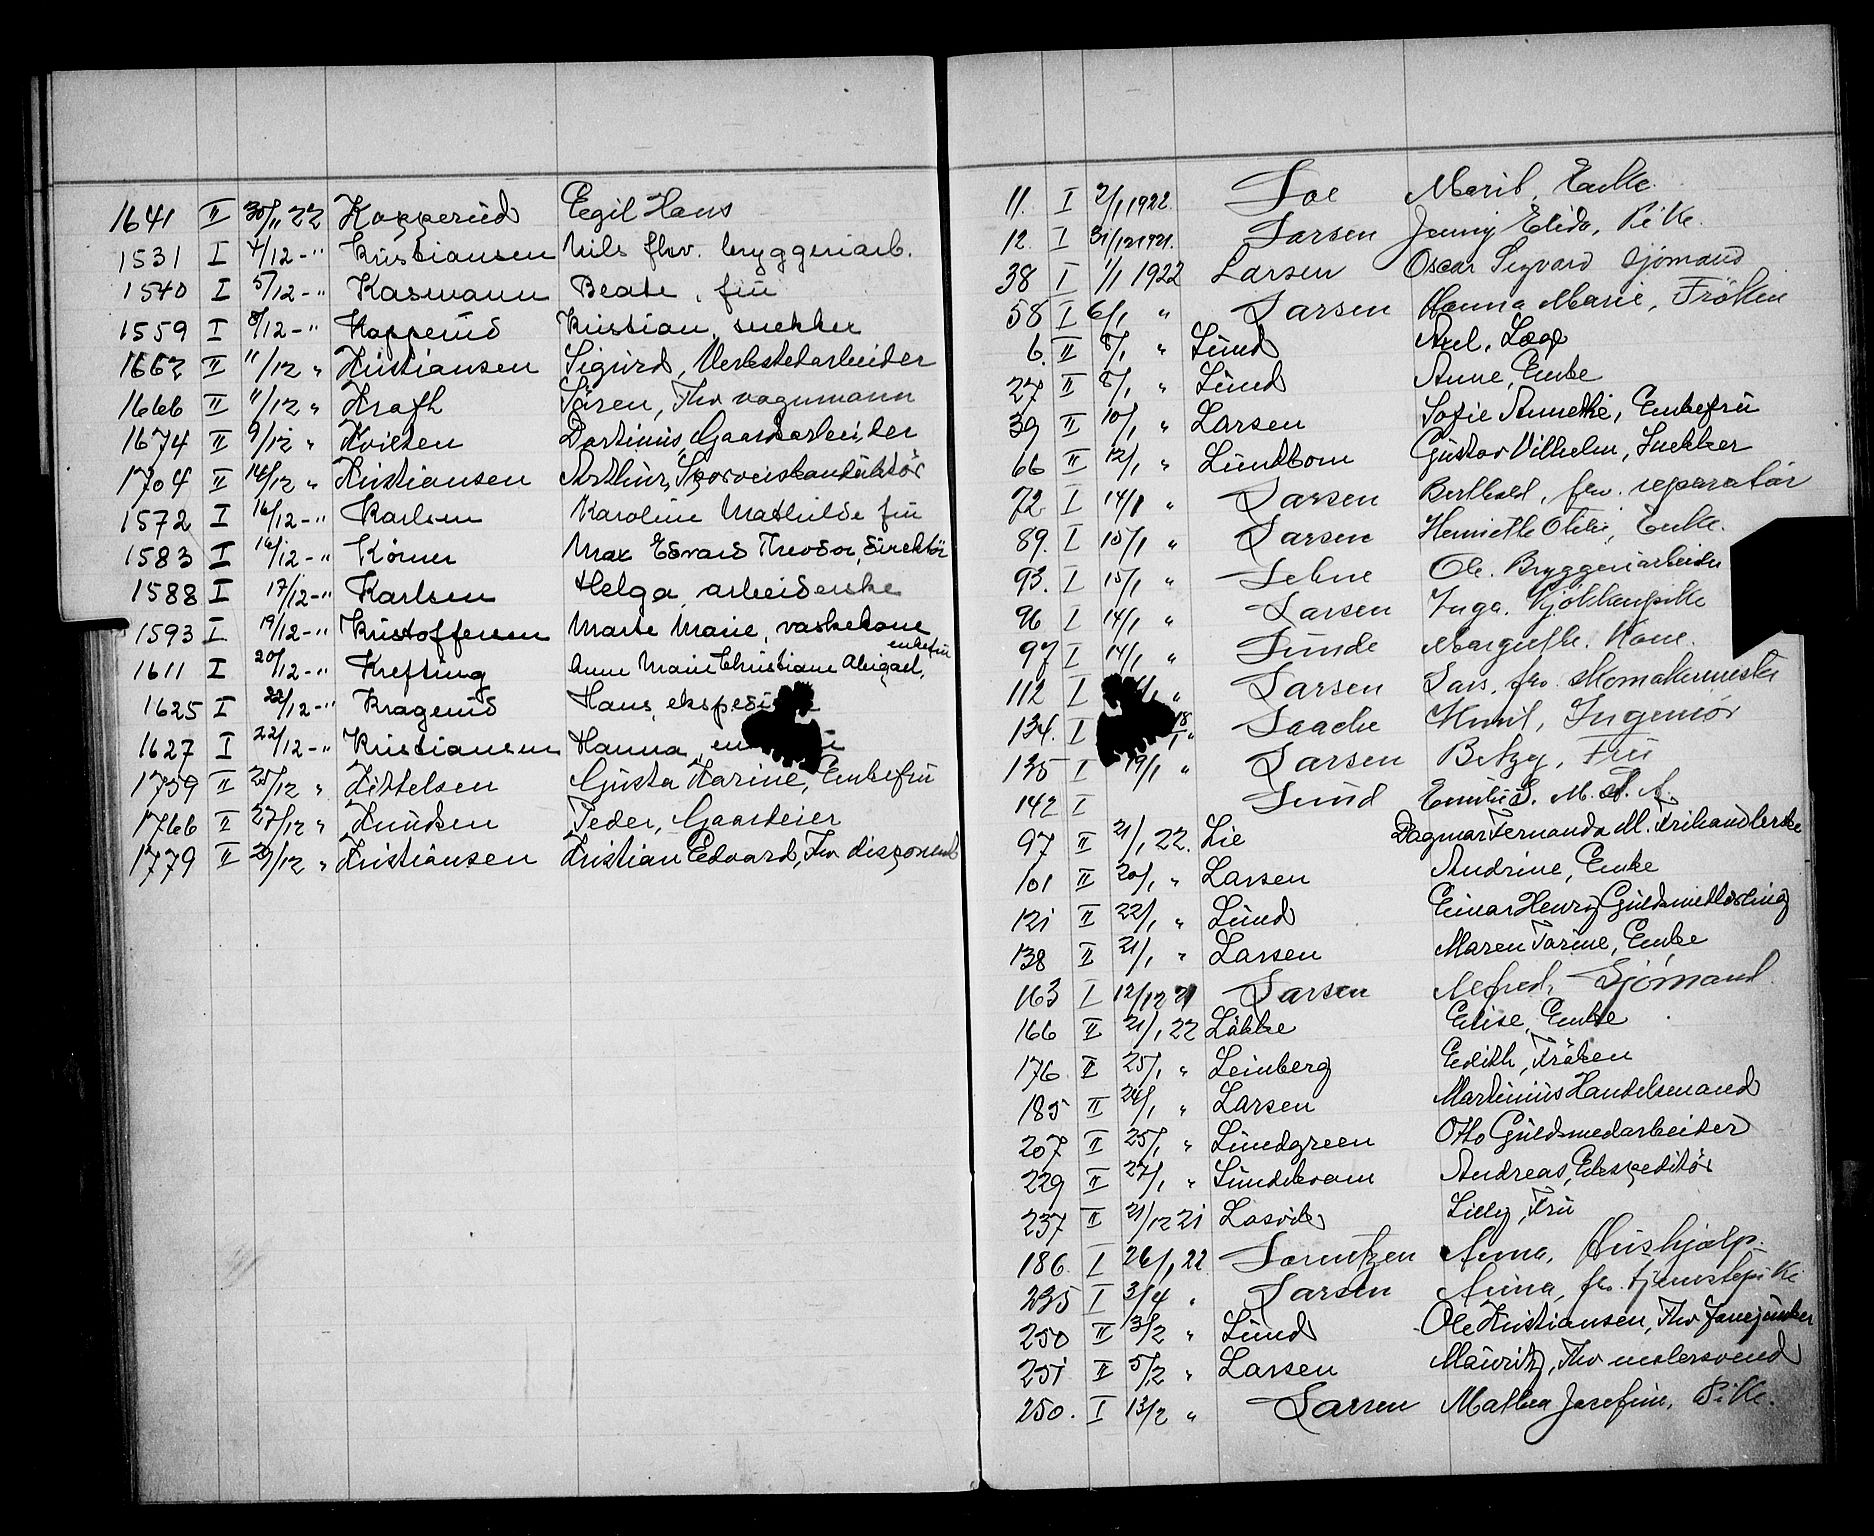 1641 II 30/11 22 Kopperud Egil Hans
1531 I 4/12 -" Kristiansen Nils fhv. bryggeriarb.
1540 I 5/12 -" Kasmann Beate, fru
1559 I 8/12 -" Kopperud Kristian, snekker
1662 II 11/12 " Kristiansen Sigurd, Verkstedarbeider
1666 II 11/12 " Kraft Sören, Fhv vognmann
1674 II 9/12 " Kvilsen Gaardsarbeider
1704 II 14/12 " Kristiansen Arthur, Sporveiskonduktör
1572 I 16/12 -" Karlsen Karoline Mathilde fru
1583 I 16/12 -" Körner Max Edvard Theodor, direktör
1588 I 17/12 -" Karlsen Helga, arbeiderske
1593 I 19/12 -" Kristoffersen Marte Marie, vaskekone
1611 I 20/12 -" Krefting Anne Marie Christiane Abigael, enkefru
1625 I 22/12 -" Kragerud Hans,
1627 I 22/12 -" Kristiansen Hanna,
1759 II 25/12 " Kittelsen Gusta Karine, Enkefru
1766 II 27/12 " Knudsen Peder, Gaardeier
1779 II 29/12 " Kristiansen Kristian Edvard, Fhv disponent
11. I 2/1 1922. Loe Marit, Enke.
12. I 31/12 1921. Larsen Jenny Elida, Pike.
38 I 1/1 1922 Larsen Oscar Sigvard Sjömand
58 I 6/1 " Larsen Hanna Marie, Fröken
6. II 8/1 " Lund Axel, Læge
27 II 8/1 " Lund Anne, Enke
39 II 10/1 " Larsen Sofie Annethe, Enkefru
66 II 12/1 " Lundbom Gustav Vilhelm, Snekker
72 I 14/1 " Larsen Berthold, fhv. reparatör
89. I 15/1 " Larsen Henriette Otilie, Enke.
93. I 15/1 " Lehne Ole. Bryggeriarbeider
96 I 14/1 " Larsen Inga. Kjökkenpike
97 I 14/1 " Lunde Margrethe. Kone.
112 I " Larsen Lars, fhv. skomakermester
134. I 18/1 " Laache Emil, Ingeniör
135 I 19/1 " Larsen Betzy, Fru
142 I Lund Emilie S. M. A.
97 II 21/1 22. Lie Dagmar Fernanda M. Frihandlerske
101 II 20/1 " Larsen Andrine, Enke
121 II 22/1 " Lund Einar Henry Guldsmedlærling
138 II 21/1 " Larsen Maren Torine, Enke
163 I 12/12 21 Larsen Alfred, Sjömand
166 II 21/1 22 Lökke Elise, Enke
176 II 25/1 " Leinberg Edith, Fröken
185 II 24/1 " Larsen Martinius Handelsmand
207 II 25/1 " Lundgreen Otto Guldsmedarbeider
229 II 27/1 " Lundekvam Andreas, Ekspeditör
237 II 21/12 21 Lilly, Fru
186. I 26/1 22 Lorentzen Anna, Hushjælp.
235 I 3/4 " Larsen Anna, fhv. tjenestepike
250 II 3/2 " Lund Ole Kristiansen, Fhv
251 II 5/2 " Larsen Mauritz, Fhv malersvend
250. I 13/2 " Larsen Mathea Josefine, Pike.